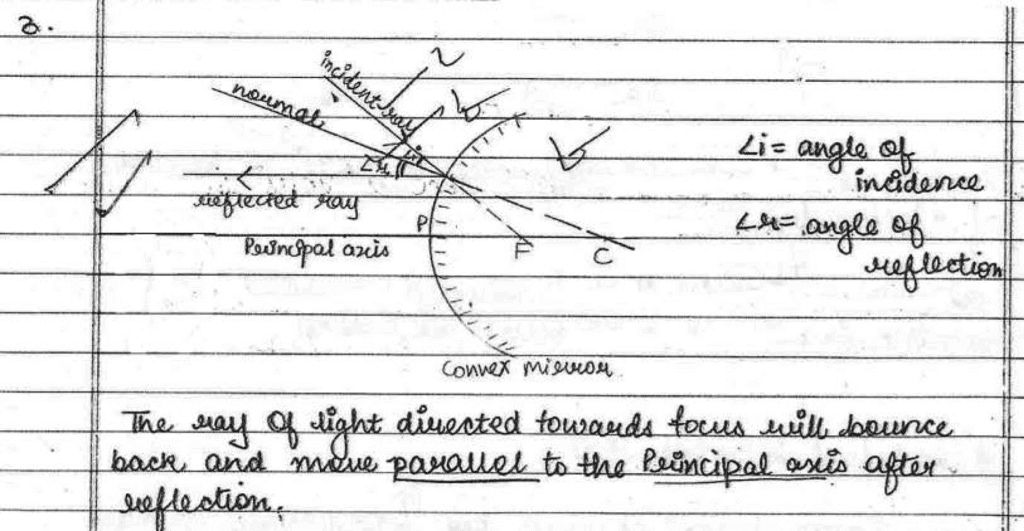 3.
incident ray
normal
∠i
∠r
reflected ray
P
Principal axis
F
C
∠i = angle of
incidence
∠r = angle of
reflection
Convex mirror
The ray of light directed towards focus will bounce
back and move parallel to the Principal axis after
reflection.